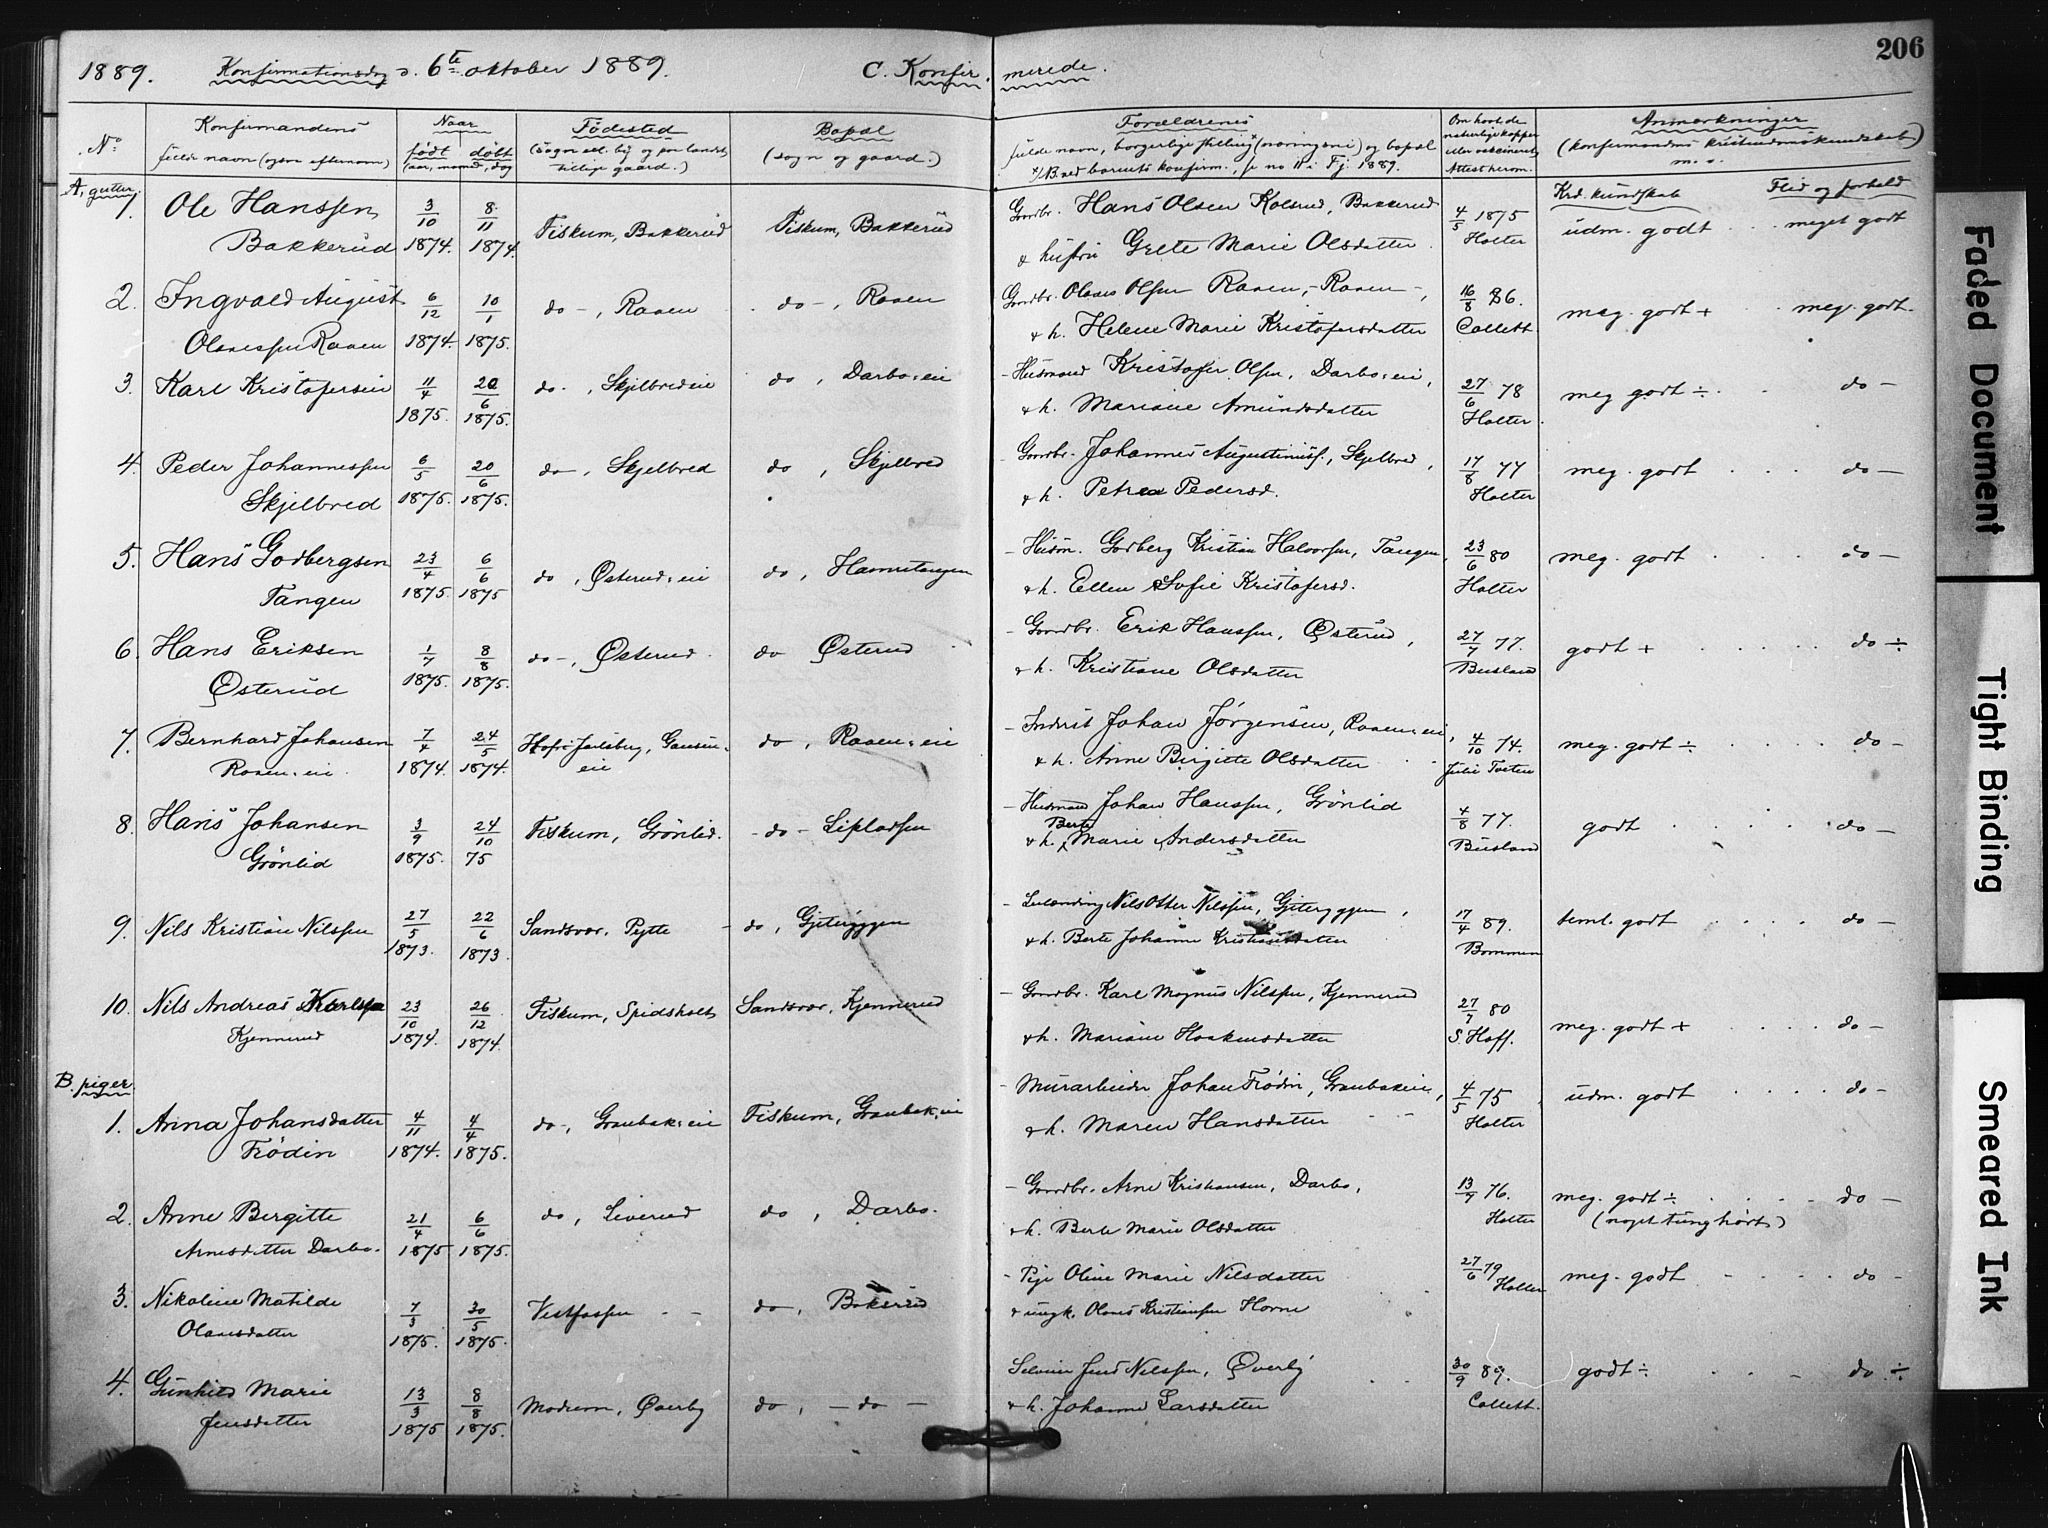 206
1889. Konfirmationsdag d. 6te oktober 1889. C. Konfirmerede.
No. Konfirmandens fulde navn (ogsaa efternavn) Naar født døbt (aar, maaned, dag) Fødested (Sogn ell. by og paa landet tillige gaard.) Bopæl (sogn og gaard.) Forældrenes fulde navn, borgerlige stilling x) (næringsvei) og bopæl x) NB. ved barnets konfirm., se no 11 i Fj. 1889. Om havt de naturlige kopper eller vaccineret, Attest herom. Anmærkninger (konfirmandens kristendomskundskab) m. v.
A, gutter. Krd. kundskab Flid og forhold
1. Ole Hanssen 3/10 8/11 Fiskum, Bakkerud Fiskum, Bakkerud Gaardbr. Hans Olsen Kolsrud, Bakkerud 4/5 1875 udm. godt meget godt
Bakkerud 1874. 1874. & hustru Grete Marie Olsdatter Holter
2. Ingvald August 6/12 10/1 do -, Raaen do -, Raaen Gaardbr. Olaves Olsen Raaen, - Raaen -, 16/8 86. meg. godt + meg. godt.
Olavessen Raaen 1874. 1875. & h. Helene Marie Kristofersdatter Collett.
3. Karl Kristofersen 11/4 20/6 do -, Skjelbredeie do, Darbo.eie - Husmand Kristofer Olsen, Darbo.eie, 27/6 78 meg godt ÷ do -
1875. 1875. & h. Mariane Amundsdatter Holter
4. Peder Johannessen 6/5 20/6 do -, Skjelbred do, Skjelbred - Gaardbr. Johannes Augustinusf., Skjelbred, 17/8 77 meg. godt do -
Skjelbred 1875. 1875. & h. Petrea Pedersd. Holter
5. Hans Godbergsen 23/4 6/6 do, Østerud.eie do, Hamretangen - Husm. Godberg Kristian Halvorsen, Tangen, 23/6 80 meg. godt do -
Tangen 1875. 1875 & h. Ellen Sofie Kristofersd. Holter
6. Hans Eriksen 1/7 8/8 do -, Østerud do Østerud - Gaardbr. Erik Hanssen, Østerud, 27/7 77. godt + do ÷
Østerud 1875. 1875. & h. Kristiane Olsdatter Busland
7. Bernhard Johansen 7/4 24/5 Hof i Jarlsberg, do, Raaen.eie - Inderst Johan Jørgensen, Raaen.eie, 4/10 74. meg. godt ÷ do -
Raaen.eie 1874. 1874. eie & h. Anne Birgitte Olsdatter Julie Tveten
8. Hans Johansen 3/9 24/10 Fiskum, Grönlid. - do - - Husmand Johan Hanssen, Grönlid 4/8 77. godt do -
Grönlid 1875. 75 & h. Berte Marie Andersdatter Busland
9. Nils Kristian Nilssen 27/5 22/6 Sandsvær, do, Gjeteryggen - Nils Otter Nilssen, Gjeteryggen, 17/4 89. teml. godt do -
1873. 1873. & h. Berte Johanne Kristiansdatter Bommen
10. Nils Andreas Karlssen 23/10 26/12 Fiskum, Spidsholt Sandsvær, Kjennerud - Gaardbr. Karl Magnus Nilssen, Kjennerud 27/7 80 meg. godt + do -
Kjennerud 1874. 1874. & h. Mariane Haakensdatter S. Hoff.
B. piger.
1. Anna Johansdatter 4/11 4/4 do -, Graubæk.eie Fiskum, Graubæk.eie - Murarbeider Johan Frödin, Graubækeie, 4/5 75 udm. godt do -
Frödin 1874. 1875. & h. Maren Hansdatter Holter
2. Anne Bergitte 21/4 6/6 do, Liverud do, Darbo. - Gaardbr. Arne Kristiansen, Darbo, 13/7 76. meg. godt ÷ do -
Arnesdatter Darbo. 1875 1875. & h. Berte Marie Olsdatter Holter (noget tunghørt)
3. Nikoline Matilde 7/3 30/5 Vestfossen do, Bakerud - Pige Oline Marie Nilsdatter 27/6 79 meg. godt do -
Olavesdatter 1875. 1875. & ungk. Olaves Kristiansen Horne Holter
4. Gunhild Marie 13/3 8/8 Modum, Øverby do, - do - Selveier Jens Nilssen, Øverby 30/9 89. godt ÷ do ÷
Jensdatter 1875 1875. & h. Johanne Larsdatter Collett.
Faded Document
Tight Binding
Smeared Ink